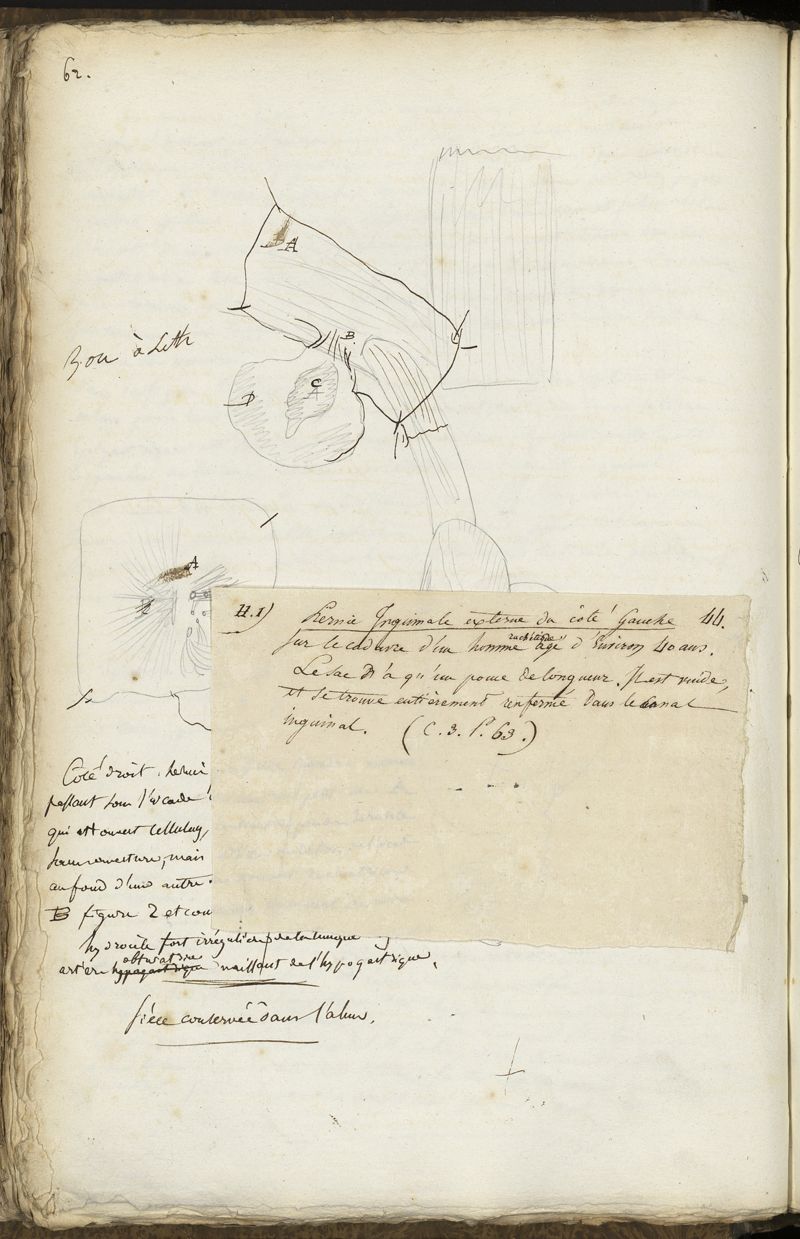 62.
A
B
C
A
D
Bon à Lith
A
H.1) Hernie Inguinale externe du côté Gauche 44.
sur le cadavre d'un homme rachitique âgé d'Environ 40 ans.
Le sac n'a qu'un pouce de longueur. Il est vuide,
et se trouve entièrement renfermé dans le Canal
inguinal. (C. 3. P. 63.)
Côté droit, herni
passant sous l'arcade
qui est ouvert
sans ouverture, mais
au fond d'une autre
B figure 2 et cou
hydrocèle fort irrégulière de la tunique
artère obturatrice naissant de l'hypogastrique.
pièce conservée dans l'alun.